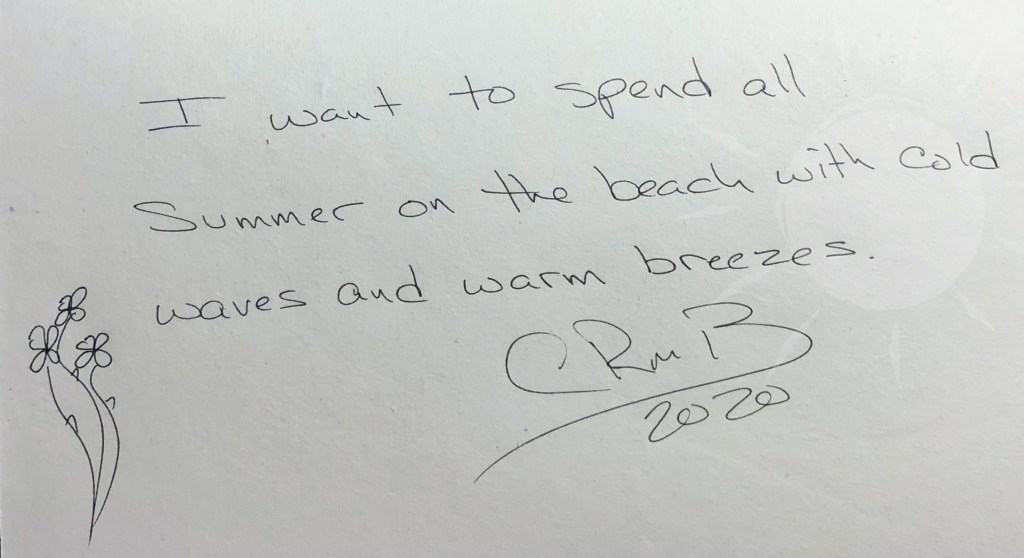 I want to spend all
Summer on the beach with cold
waves and warm breezes.
CRmB
2020